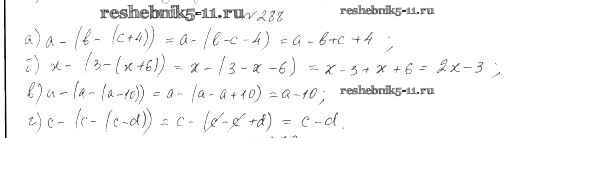 reshebnik5-11.ru №288 reshebnik5-11.ru
а) a - (b - (c+4)) = a - (b-c-4) = a - b+c +4 ;
б) x - (3-(x+6)) = x - (3-x-6) = x-3+x+6 = 2x-3 ;
в) a - (a - (a-10)) = a - (a-a+10) = a-10; reshebnik5-11.ru
г) c - (c - (c-d)) = c - (c-c+d) = c-d.